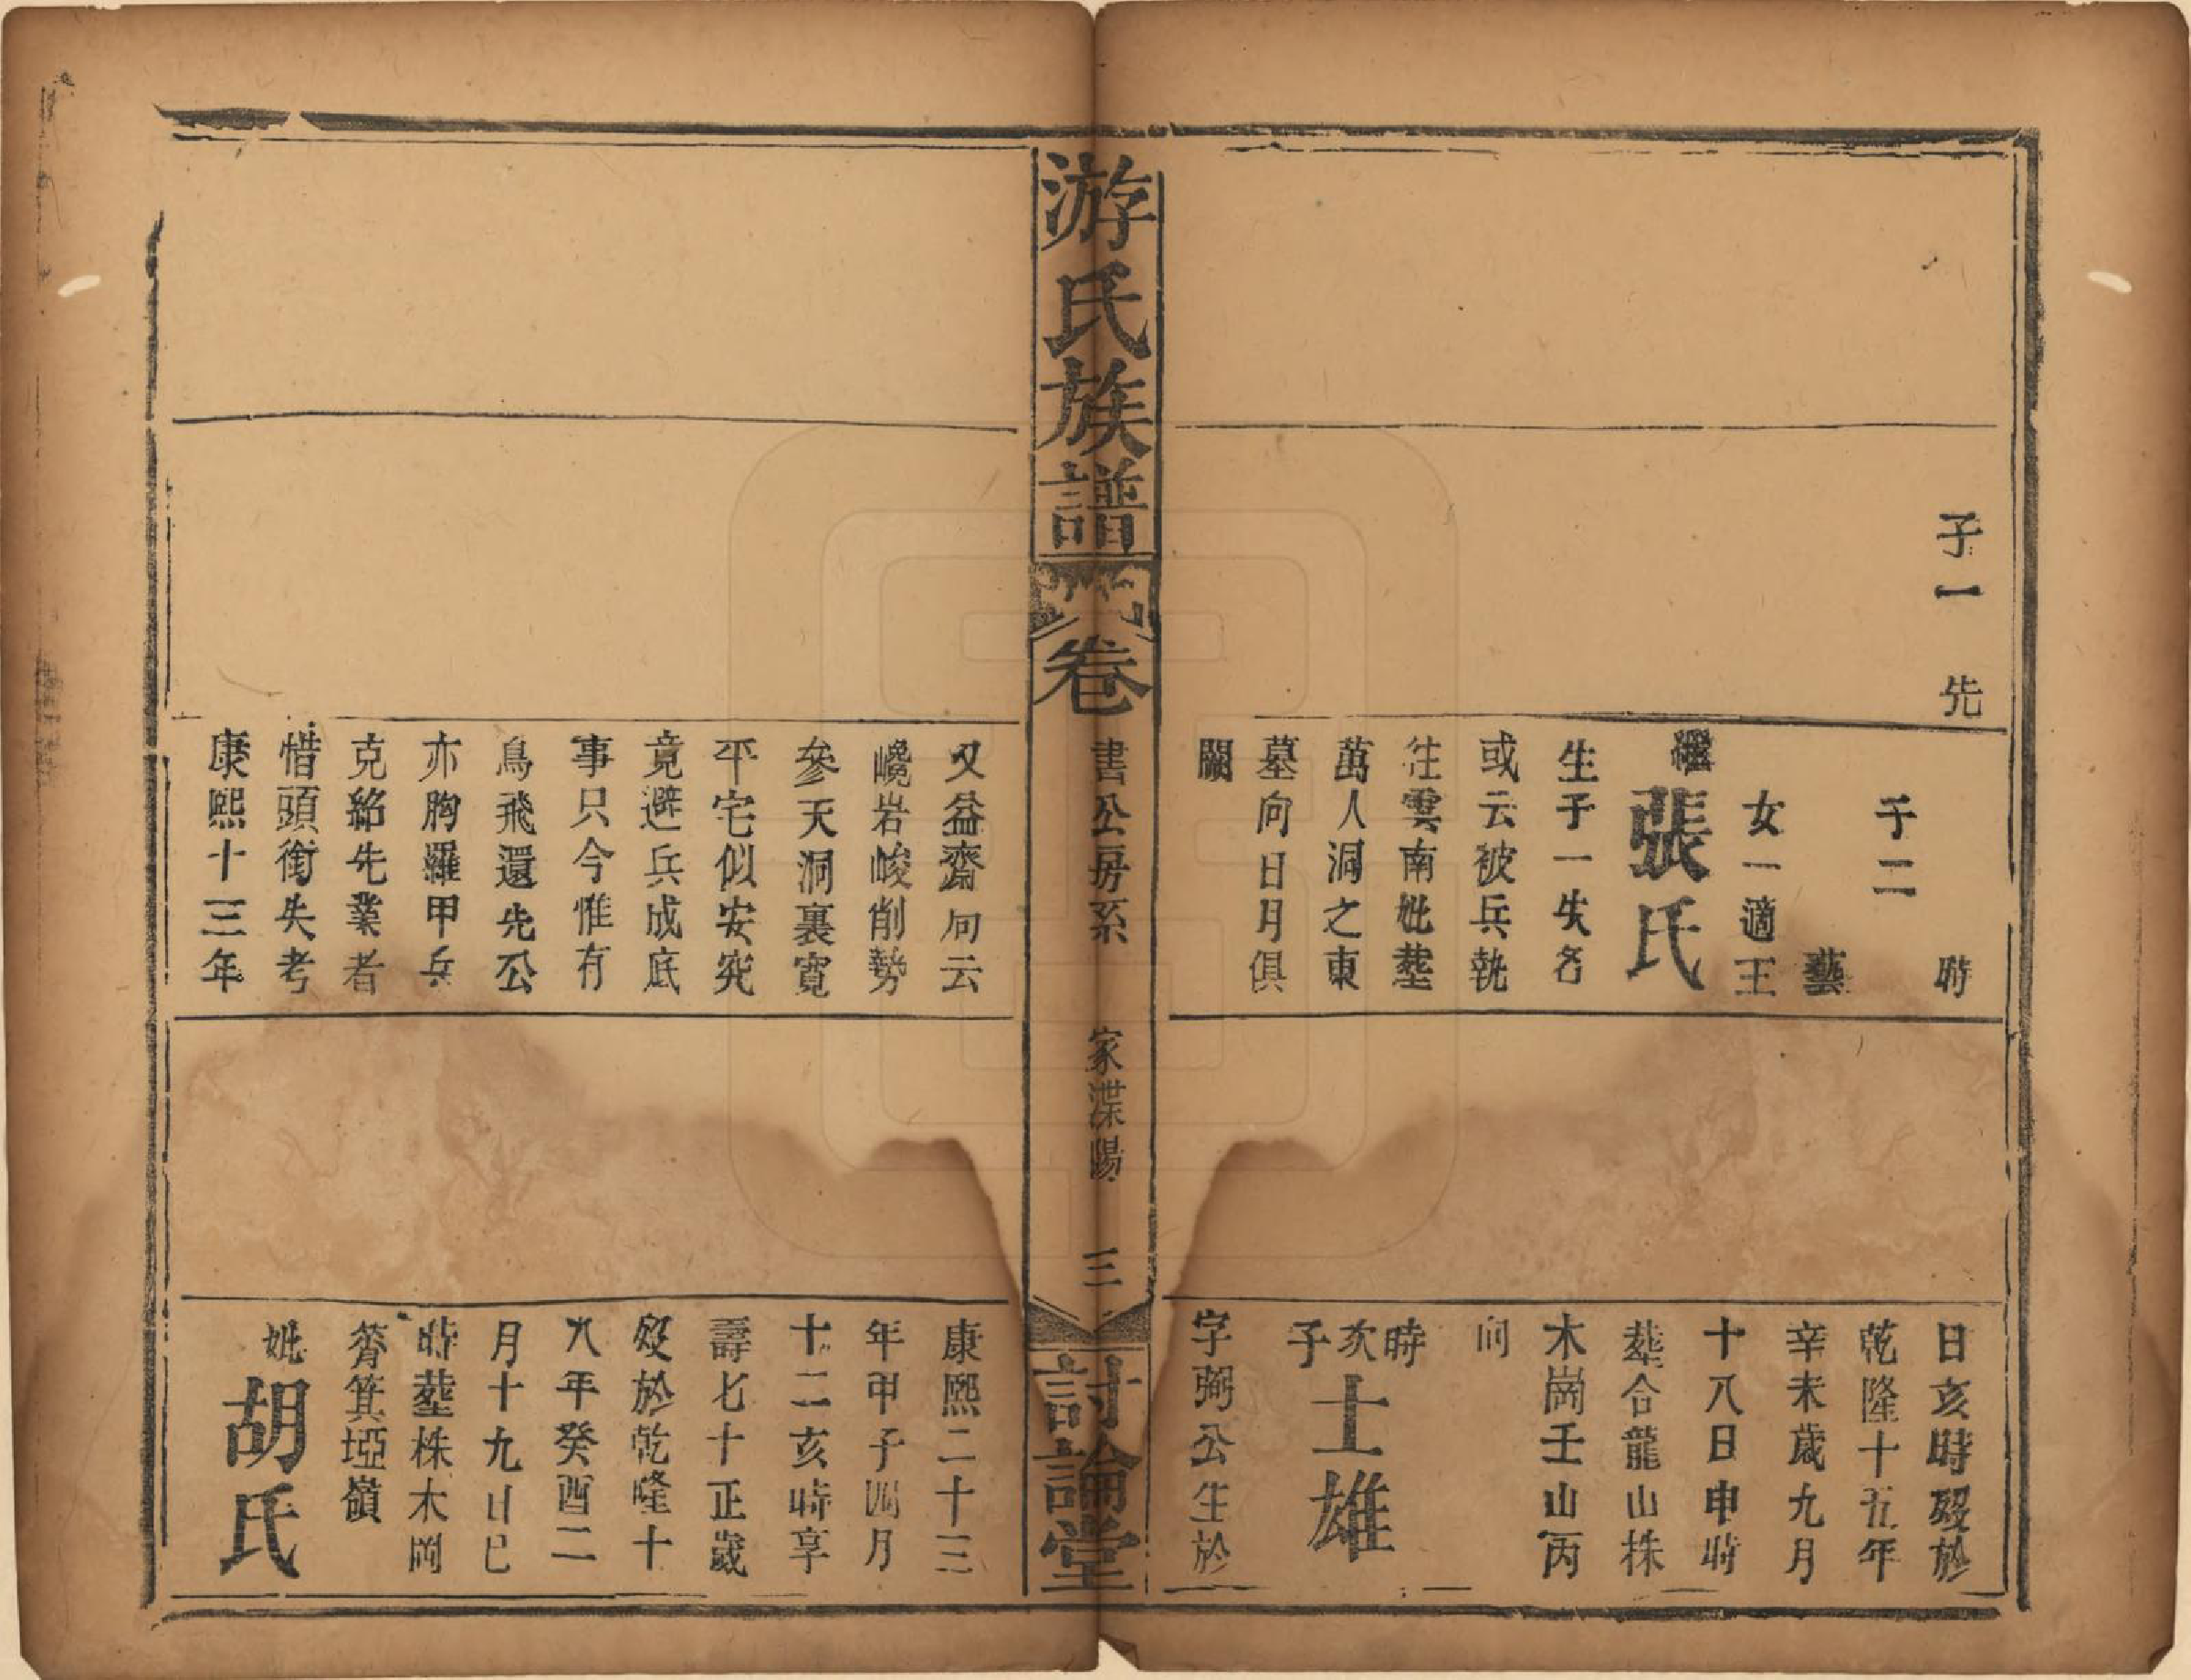 子一 先
時
子二
藝
女一適王
繼張氏
生子一失名
或云被兵執
往雲南妣塟
萬人洞之東
墓向日月俱
闕
日亥時歿於
乾隆十五年
辛未歲九月
十八日申時
塟合龍山株
木崗壬山丙
向
時亥子士雄
字弼公生於
游氏族譜
卷
書公房系
家渫陽
三
討論堂
又益齋句云
巉岩峻削勢
參天洞裏寬
平宅似安究
竟避兵成底
事只今惟有
鳥飛還先公
亦胸羅甲兵
克紹先業者
惜頭銜失考
康熙十三年
康熙二十三
年甲子四月
十二亥時享
壽七十正歲
歿於乾隆十
八年癸酉二
月十九日巳
時塟株木岡
筲箕埡嶺
妣胡氏